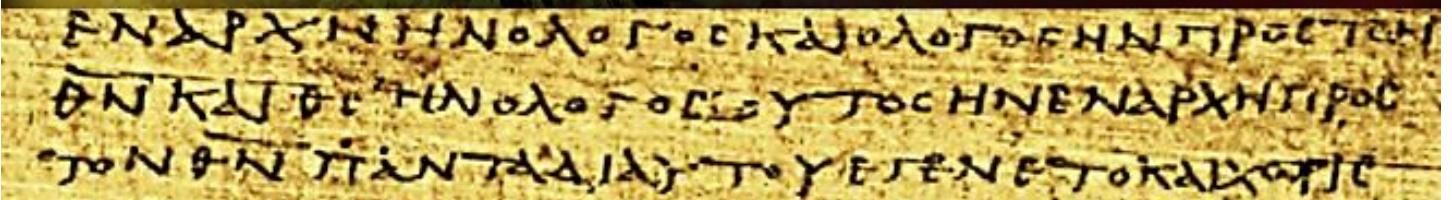 ΕΝΑΡΧΗΗΝΟΛΟΓΟϹΚΑΙΟΛΟΓΟϹΗΝΠΡΟϹΤΟΝ
Θ̅Ν̅ΚΑΙΘ̅Ϲ̅ΗΝΟΛΟΓΟϹΟΥΤΟϹΗΝΕΝΑΡΧΗΠΡΟϹ
ΤΟΝΘ̅Ν̅ΠΑΝΤΑΔΙΑΥΤΟΥΕΓΕΝΕΤΟΚΑΙΧΩΡΙϹ